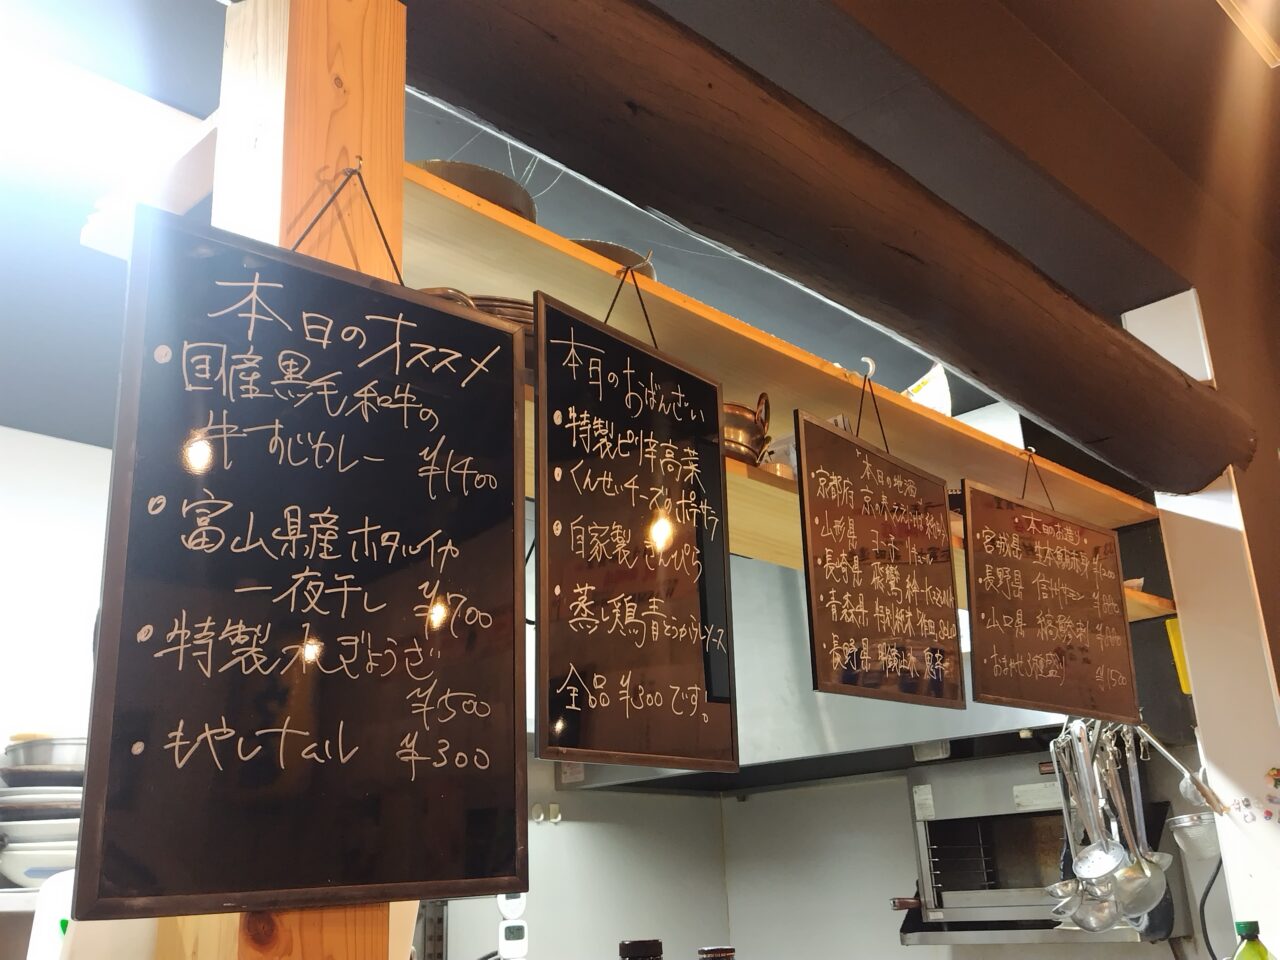 本日のオススメ
・国産黒毛和牛の
牛すじカレー ¥1400
・富山県産ホタルイカ
一夜干し ¥700
・特製水ぎょうざ
¥500
・もやしナムル ¥300
本日のおばんざい
・特製ピリ辛高菜
・くんせいチーズのポテサラ
・自家製きんぴら
・蒸し鶏青とうがらしソース
全品¥300です!
本日の地酒
・京都府 京の春
・山形県
・長崎県 飛鸞
・青森県 特別純米
・長野県
本日のお造り
・宮城県 生本鮪赤身 ¥1200
・長野県 信州サーモン
・山口県
・おまかせ3種盛り ¥1500